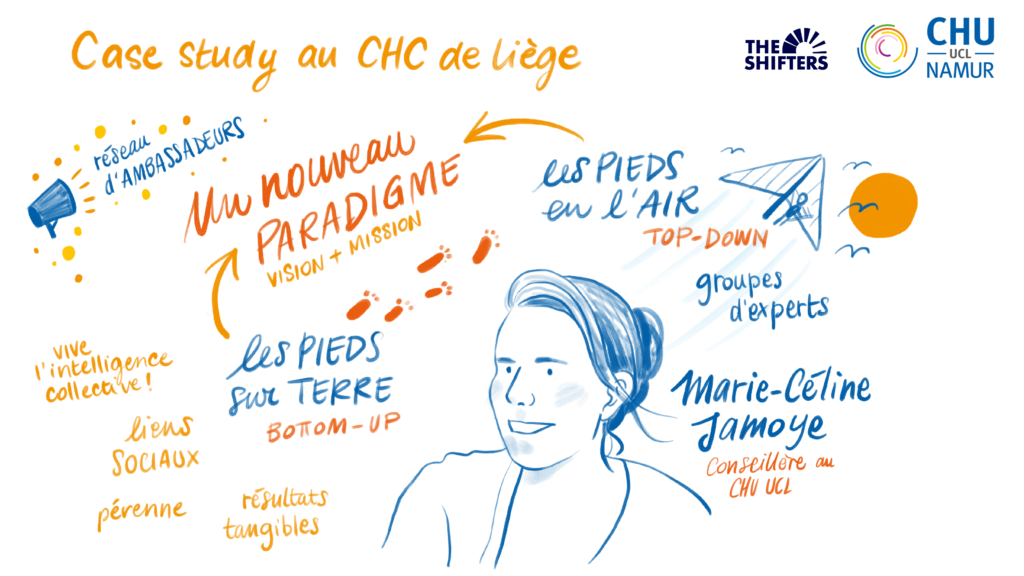 Case study au CHC de liège
THE
SHIFTERS
CHU
UCL
NAMUR
réseau
d'AMBASSADEURS
Un nouveau
PARADIGME
VISION + MISSION
les PIEDS
en l'AIR
TOP-DOWN
groupes
d'experts
vive
l'intelligence
collective!
les PIEDS
sur TERRE
BOTTOM-UP
liens
SOCIAUX
pérenne
résultats
tangibles
Marie-Céline
Jamoye
Conseillère au
CHU UCL